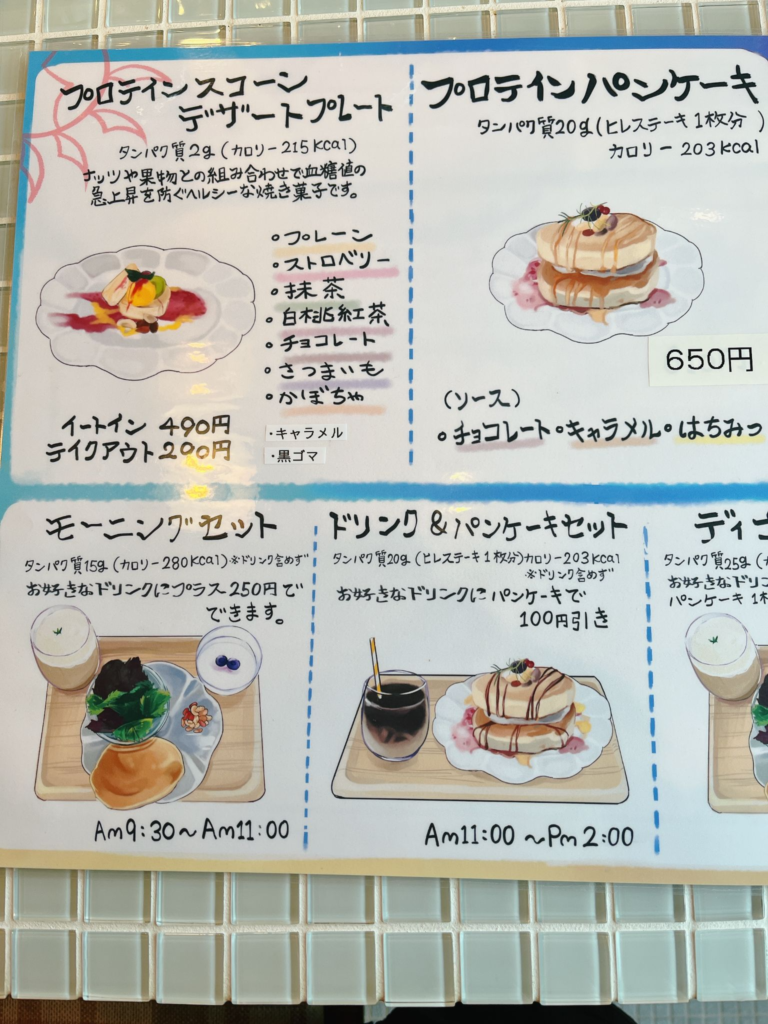 プロテインスコーン
デザートプレート
タンパク質2g(カロリー215Kcal)
ナッツや果物との組み合わせで血糖値の
急上昇を防ぐヘルシーな焼き菓子です。
•プレーン
•ストロベリー
•抹茶
•白桃紅茶
•チョコレート
•さつまいも
•かぼちゃ
・キャラメル
・黒ゴマ
イートイン 490円
テイクアウト 290円
プロテインパンケーキ
タンパク質20g(ヒレステーキ1枚分)
カロリー 203Kcal
650円
(ソース)
•チョコレート•キャラメル•はちみつ
モーニングセット
タンパク質15g(カロリー280Kcal)※ドリンク含めず
お好きなドリンクにプラス250円で
できます。
Am9:30~Am11:00
ドリンク&パンケーキセット
タンパク質20g(ヒレステーキ1枚分)カロリー203Kcal
※ドリンク含めず
お好きなドリンクにパンケーキで
100円引き
Am11:00~Pm2:00
ディ
タンパク質25g(
お好きなドリン
パンケーキ 1枚